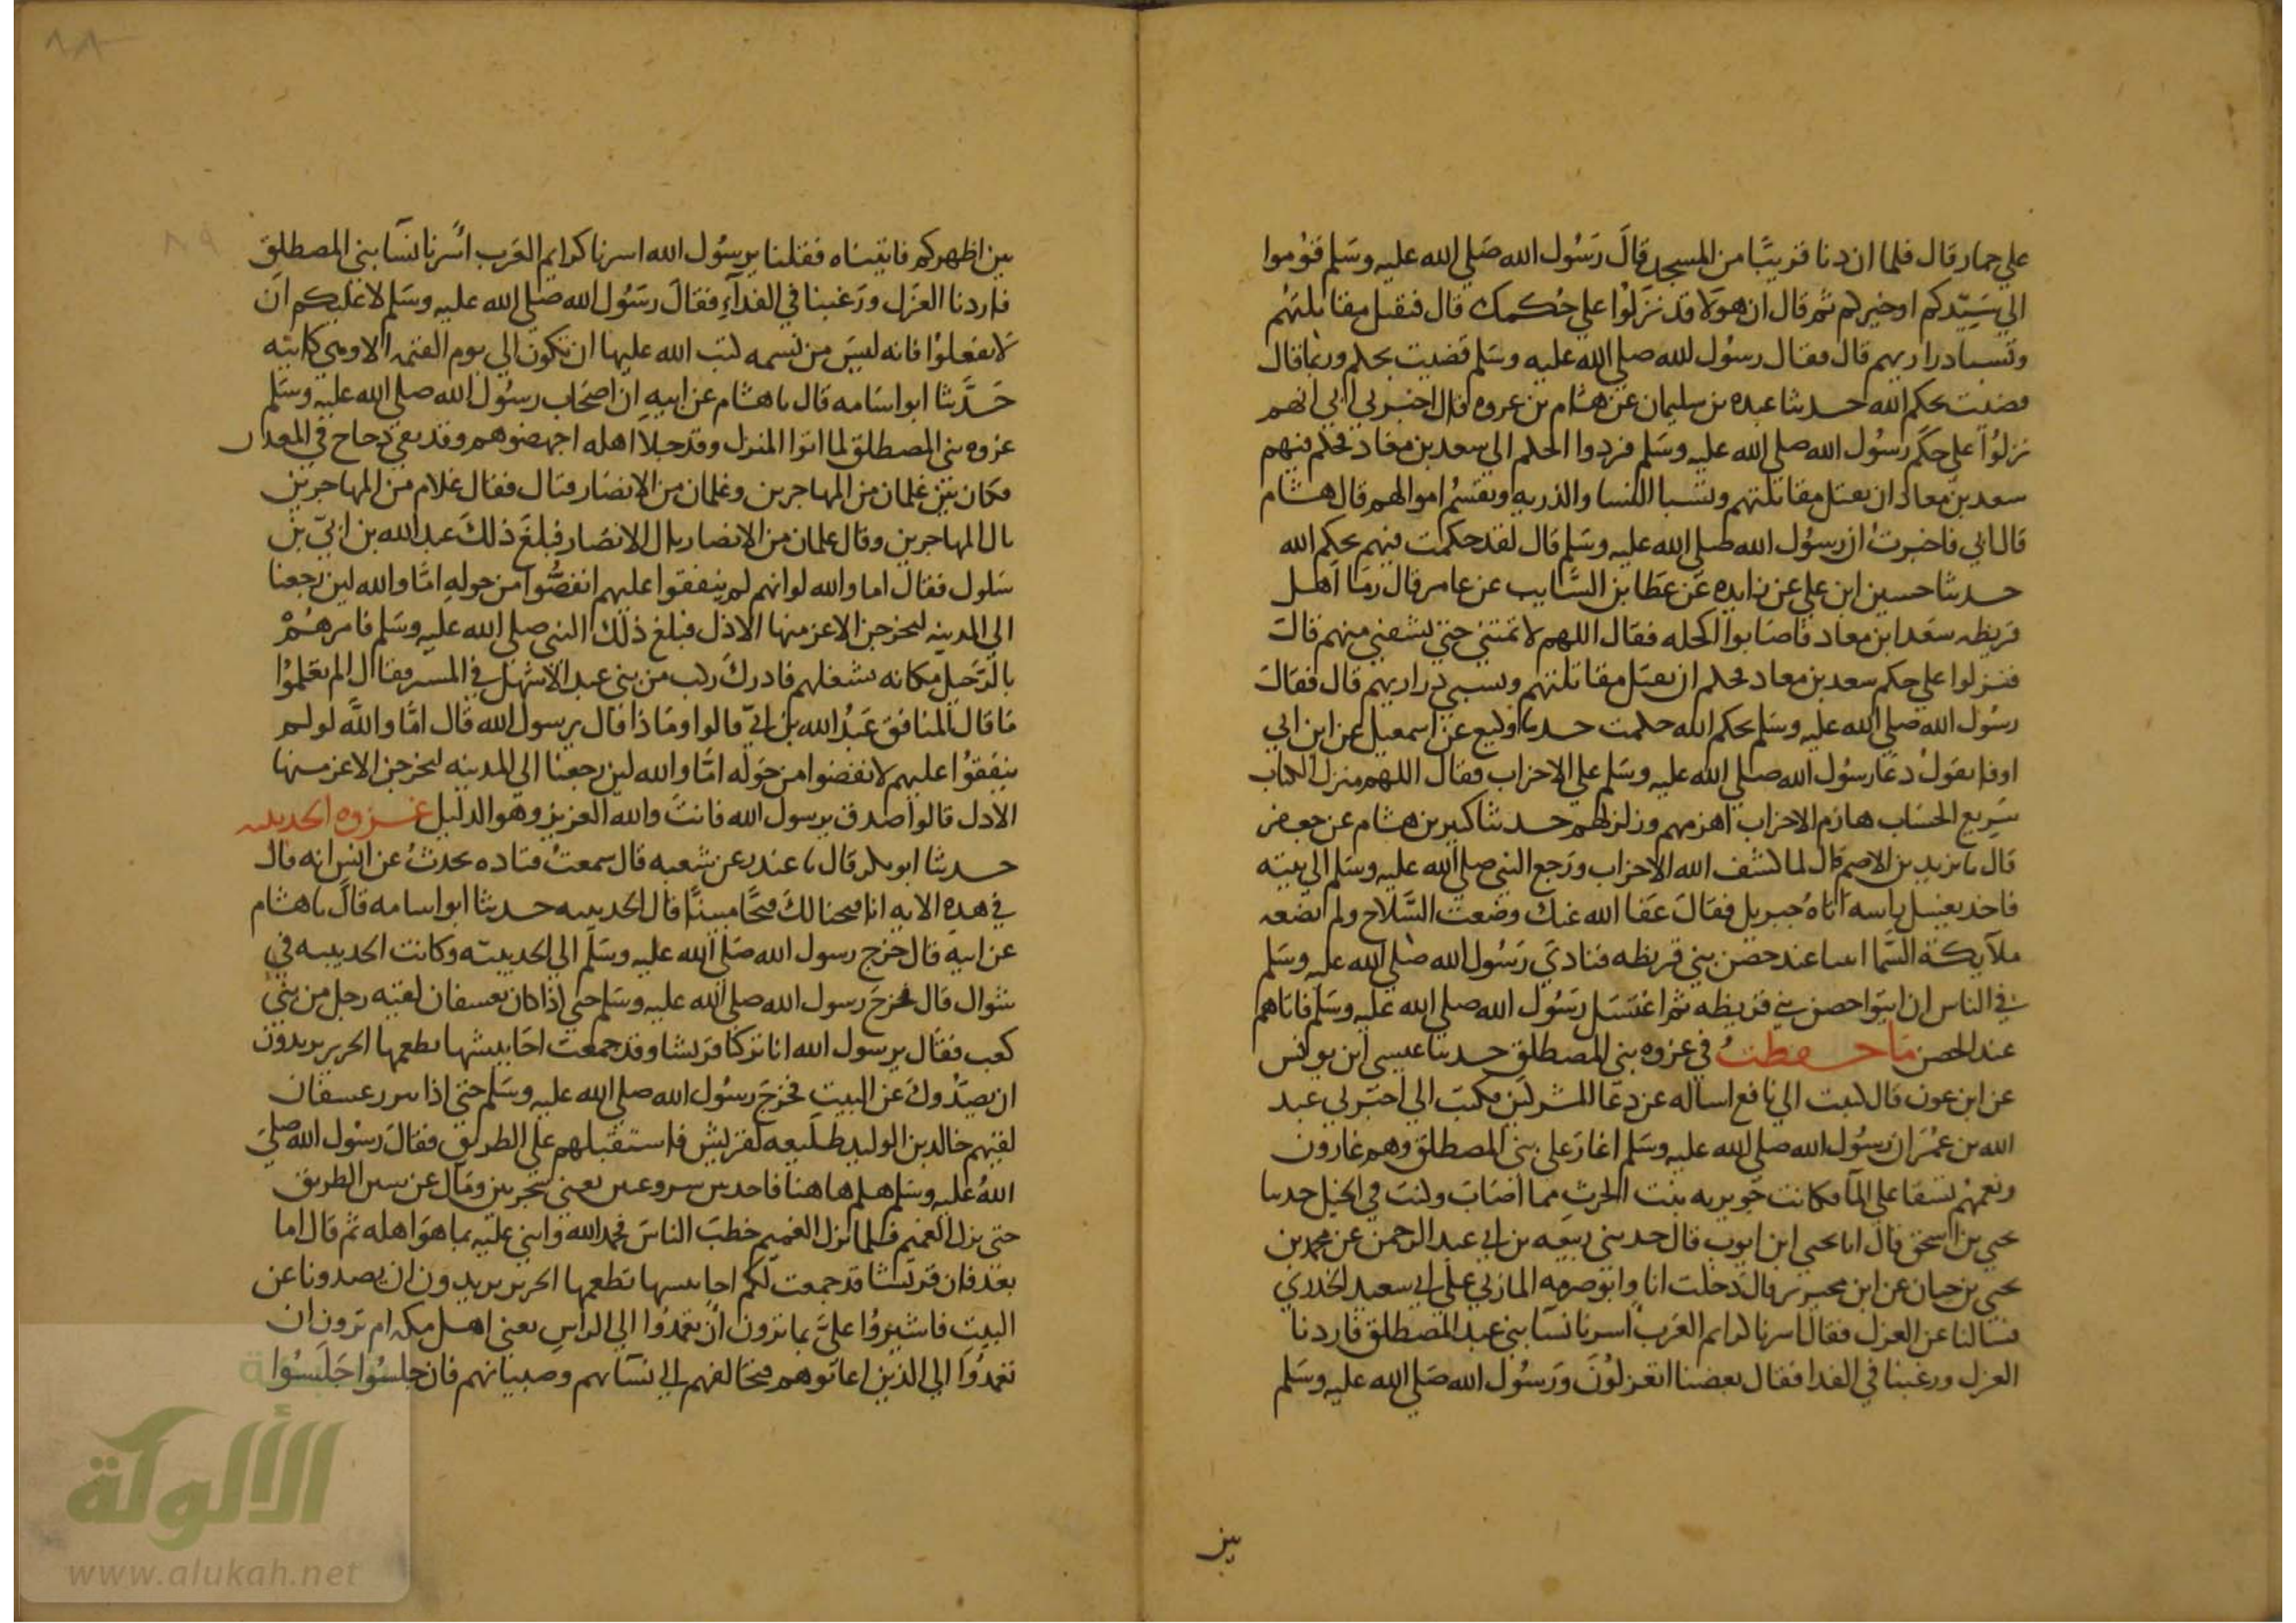 علي حمار قال فلما ان دنا قريبًا من المسجد قالَ رَسُول الله صَلي الله عليه وسَلم قوُموا
الي سَيّدكم او خيركم ثم قال ان هوَلا قد نزَلوُا علي حُكمك قال فتقبل مقاتلتهُم
وتسبا دراريهم قال فقال رسوُل الله صلي الله عليه وسَلم قضيت بحكم وربما قال
قضيت بحكم الله حدثنا عبده بن سليمان عن هشام بن عروه قال اخبرني ابي انهم
نزلوُا علي حكم رسُول الله صلي الله عليه وسَلم فردوا الحكم الي سعد بن معاد فحكم فيهم
سعد بن معاد ان يقتل مقاتلتهم وتسبا النسا والذريه وتقسمُ اموالهم قال هشام
قال ابي فاخبرتُ ان رسوُل الله صلي الله عليه وسَلم قال لقد حكمت فيهم بحكم الله
حدثنا حسين ابن علي عن زايده عَن عَطا بن السَّايب عن عامر قال رمَا اهل
قريظه سعَد ابن معاد فاصَابوا اكحله فقال اللهم لا تمتني حتي تشفني منهم قال
فنزلوا علي حكم سعد بن معاد فحكم ان يقتل مقاتلتهم ويسبي دراريهم قال فقال
رسُول الله صلي الله عليه وسَلم بحكم الله حكمت حدثنا وكيع عن اسمعيل عن ابن ابي
اوفا يقولُ دعَا رسوُل الله صلي الله عليه وسَلم علي الاحزاب فقال اللهم منزل الكتاب
سَريع الحسَاب هازم الاحزاب اهزمهم وزلزلهم حدثنا كثير بن هشام عن جعفر
قال نا يزيد بن الاصم قال لما كشف الله الاحزاب ورَجع النبي صلي الله عليه وسَلم الي بيته
فاخد يغسل راسه اتاهُ جبريل فقالَ عَفا الله عنك وضعتَ السَّلاح ولم تضعه
ملآيكة السَّما اتينا عند حصن بني قريظه فنادَي رَسُول الله صلي الله عليه وسَلم
في الناس ان ايتوا حصن بني قريظه ثم اغتسَل رَسُول الله صلي الله عليه وسَلم فاتاهم
عند الحصن مَا حفظتُ في غزوه بني المصطلق حدثنا عيسي ابن يونس
عن ابن عون قال كتبت الي نافع اساله عن دعَا المشركين فكتبَ الي اخبَرني عبد
الله بن عُمَر ان رسوُل الله صلي الله عليه وسَلم اغارَ علي بني المصطلق وهم غارون
ونعمهُم تسقا علي المآ فكانت جويريه بنت الحرث مما اصَابَ وكنتَ في الخيل حدثنا
يحيي بن اسحق قال انا يحيي ابن ايوب قال حدثني ربيعَه بن ابي عبد الرحمن عن محمد بن
يحيي بن حبان عن ابن محيريز قال دَخلت انا وابو صرمه المازني علي ابي سعيد الخدري
فسالنا عن العزل فقال اسرنا كرايم العَرَب اسرنا نسآ بني عبد المصطلق فاردنا
العزل ورغبنا في الفدا فقال بعضنا اتعزلوُنَ ورَسُول الله صَلي الله عليه وسَلم
بين
٨٨
٨٩
بين اظهركم فاتيناه فقلنا يرسُول الله اسرنا كرايم العَرب اسَرنا نسَآ بني المصطلق
فاردنا العزَل ورَغبنا في الفدآء فقالَ رسَوُل الله صَلي الله عليه وسَلم لا عَليكم ان
لا تفعلوُا فانه ليسَ من نسمه كتب الله عليها ان تكون الي يوم القيمه الا وهي كاينه
حَدَّثنا ابو اسَامه قال نا هشام عن ابيه ان اصحَاب رسوُل الله صلي الله عليه وسَلم
غزوه بني المصطلق لما اتوا المنزل وقد جلا اهله اجهضوهم وقد بقي دجاج في المعدن
فكان بَيْنَ غلمان من المهاجرين وغلمان من الانصَار قتال فقال غلام من المهاجرين
يال المهاجرين وقال غلمان من الانصار يال الانصَار فبلغَ ذلكَ عبد الله بن ابيّ بن
سَلول فقال اما والله لو انهم لم ينفقوا عليهم انفضُّوا من حوله امَّا والله لين رجعنا
الي المدينه ليخرجن الاعز منها الاذل فبلغ ذلك النبي صلي الله عليه وسَلم فامرهُمْ
بالرَّحيل مكانه يشغلهم فادرك رَكب من بني عبد الاشهل في المسير فقال الم تعَلموُا
مَا قال المنافق عَبْدُ الله بن ابيّ قالوا ومَاذا قال يرسول الله قال امَّا والله لو لم
ينفقوُا عليهم لانفضوا من حَوله امَّا والله لين رجعنا الي المدينه ليخرجن الاعز منها
الادل قالوا صدق يرسول الله فانتَ والله العزيز وهو الدليل غزوه الحديبيه
حدثنا ابو بكر قال نا غندر عن شعبه قال سمعتُ قتاده يحدثُ عن انس انه قال
في هذه الايه انا فتحنا لك فتحًا مبينًا قال الحديبيه حدثنا ابو اسامه قالَ نا هشام
عن ابيه قال خرَج رسول الله صَلي الله عليه وسَلم الي الحديبيّه وكانت الحديبيه في
شوال قال فخرجَ رسول الله صلي الله عليه وسَلم حتي اذا كان بعسفان لقيَه رجل من بني
كعب فقال يرسول الله انا تركنا قريشا وقد جمعت احَابيشها تطعمها الخرير يريدون
ان يصَدُّوكَ عن البيتِ فخرَجَ رسُول الله صلي الله عليه وسَلم حتي اذا برر عسفان
لقيَهم خالد بن الوليد طليعه لقريش فاستقبلهم علي الطريق فقالَ رسُول الله صَلي
اللهُ عَليه وسَلم هلم هاهنا فاخد بين سروعين يعني شجرتين ومَال عن سنن الطريق
حتي نزل الغميم فلما نزل الغميم خطبَ الناسَ فحمد الله واثني عليه بما هوَ اهله ثم قال اما
بعد فان قريشا قد جمعت لكم احابيشها تطعمها الخرير يريدون ان يصدونا عن
البيتِ فاشيروُا عليَّ بما ترون ان تعَمدُوا الي الراسِ يعني اهل مكه ام ترون ان
تعَمدُوا الي الذين اعانوهم فتخالفهم الي نسَآيهم وصبيانهم فان جلسُوا جَلَسُوا
الألوكة
www.alukah.net